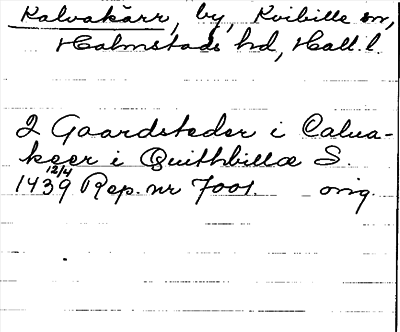 Kalvakärr, by, Kvibille sn,
Halmstads hd, Hall. l.
2 Gaardsteder i Calua-
keer i Quithbillæ S.
1439 12/4 Rep. nr 7001. orig.